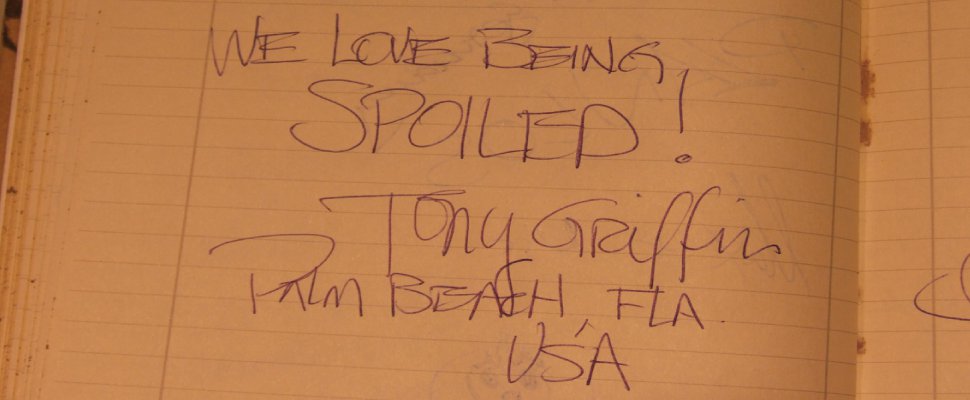 WE LOVE BEING
SPOILED!
Tony Griffin
PALM BEACH, FLA.
USA